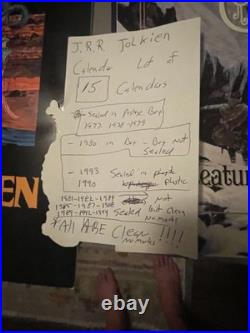 J.R.R Tolkien
Calenda Lot of
15 Calendars
- Sealed in Prime Bag
1977 1978-1979
- 1980 in Box - Box not
Sealed
- 1993 Sealed in plastic
1990 plastic
1981-1982-1984 Not
1985-1987-1988 Sealed but Clean
1989-1991-1994 No marks
*All ARE Clean !!!!
No marks
EN
eatur